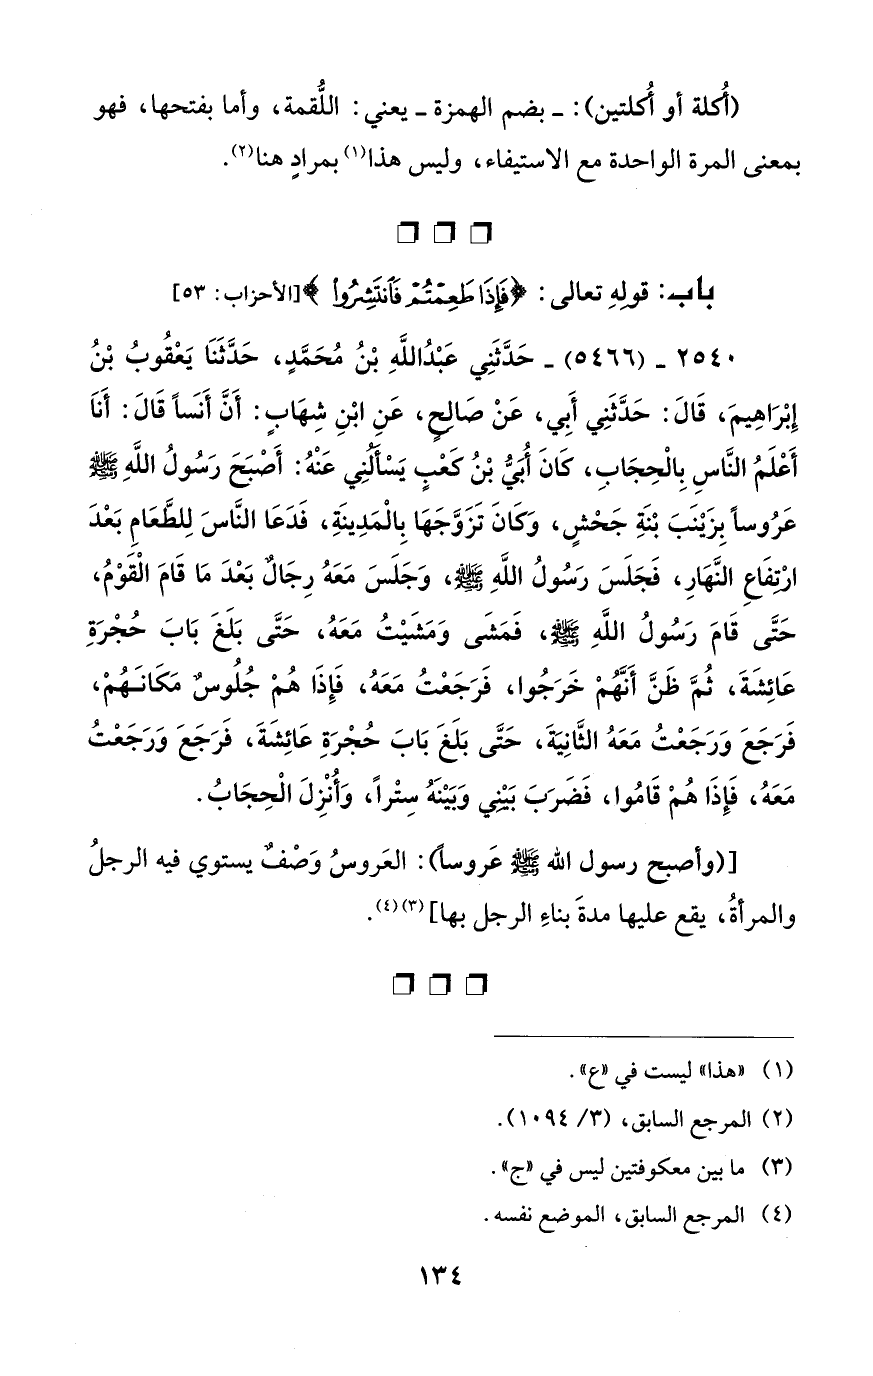 (أُكلة أو أُكلتين): ـ بضم الهمزة ـ يعني: اللُّقمة، وأما بفتحها، فهو
بمعنى المرة الواحدة مع الاستيفاء، وليس هذا(١) بمرادٍ هنا(٢).
باب: قولِهِ تعالى: ﴿فَإِذَا طَعِمْتُمْ فَٱنتَشِرُوا۟﴾[الأحزاب: ٥٣]
٢٥٤٠ ـ (٥٤٦٦) ـ حَدَّثَنِي عَبْدُاللَّهِ بْنُ مُحَمَّدٍ، حَدَّثَنَا يَعْقُوبُ بْنُ
إِبْرَاهِيمَ، قَالَ: حَدَّثَنِي أَبِي، عَنْ صَالِحٍ، عَنِ ابْنِ شِهَابٍ: أَنَّ أَنَساً قَالَ: أَنَا
أَعْلَمُ النَّاسِ بِالْحِجَابِ، كَانَ أُبَيُّ بْنُ كَعْبٍ يَسْأَلُنِي عَنْهُ: أَصْبَحَ رَسُولُ اللَّهِ ﷺ
عَرُوساً بِزَيْنَبَ بْنَةِ جَحْشٍ، وَكَانَ تَزَوَّجَهَا بِالْمَدِينَةِ، فَدَعَا النَّاسَ لِلطَّعَامِ بَعْدَ
ارْتِفَاعِ النَّهَارِ، فَجَلَسَ رَسُولُ اللَّهِ ﷺ، وَجَلَسَ مَعَهُ رِجَالٌ بَعْدَ مَا قَامَ الْقَوْمُ،
حَتَّى قَامَ رَسُولُ اللَّهِ ﷺ، فَمَشَى وَمَشَيْتُ مَعَهُ، حَتَّى بَلَغَ بَابَ حُجْرَةِ
عَائِشَةَ، ثُمَّ ظَنَّ أَنَّهُمْ خَرَجُوا، فَرَجَعْتُ مَعَهُ، فَإِذَا هُمْ جُلُوسٌ مَكَانَهُمْ،
فَرَجَعَ وَرَجَعْتُ مَعَهُ الثَّانِيَةَ، حَتَّى بَلَغَ بَابَ حُجْرَةِ عَائِشَةَ، فَرَجَعَ وَرَجَعْتُ
مَعَهُ، فَإِذَا هُمْ قَامُوا، فَضَرَبَ بَيْنِي وَبَيْنَهُ سِتْراً، وَأُنْزِلَ الْحِجَابُ.
[(وأصبح رسول الله ﷺ عَروساً): العَروسُ وَصْفٌ يستوي فيه الرجلُ
والمرأةُ، يقع عليها مدةَ بناءِ الرجل بها](٣)(٤).
(١) «هذا» ليست في «ع».
(٢) المرجع السابق، (٣/ ١٠٩٤).
(٣) ما بين معكوفتين ليس في «ج».
(٤) المرجع السابق، الموضع نفسه.
١٣٤